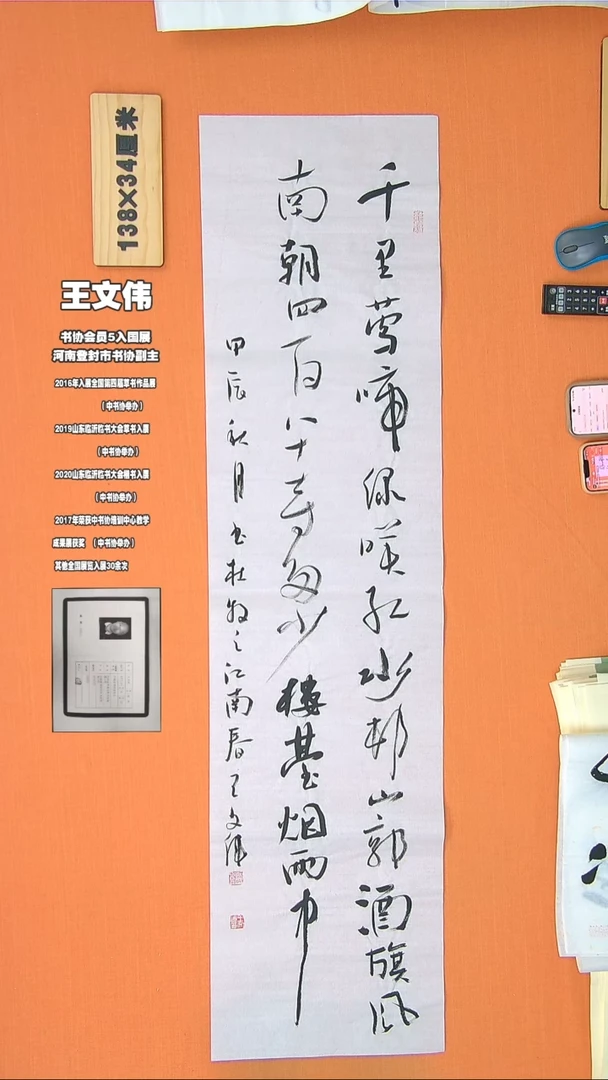 千里莺啼绿暎红水邨山郭酒旗风
南朝四百八十寺多少楼臺烟雨中
甲辰秋月书杜牧之江南春王文伟
138×34厘米
王文伟
书协会员5入国展
河南登封市书协副主
2016年入展全国第四届草书作品展
（中书协举办）
2019山东临沂临书大会草书入展
（中书协举办）
2020山东临沂临书大会楷书入展
（中书协举办）
2017年荣获中书协培训中心教学
成果展获奖 （中书协举办）
其他全国展览入展30余次